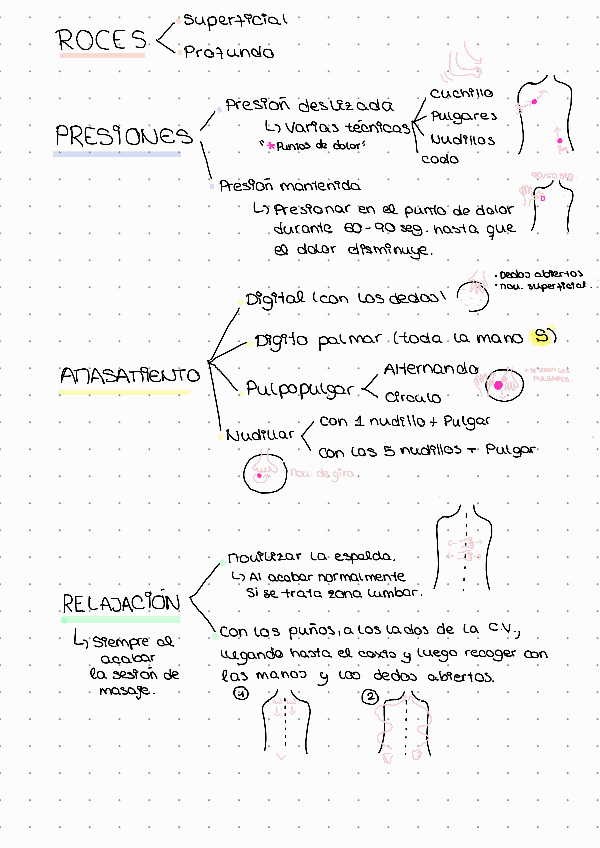 ROCES
Superficial
Profundo
PRESIONES
Presión deslizada
↳ Varias técnicas
"*Puntos de dolor"
Cuchillo
Pulgares
Nudillos
codo
Presión mantenida
↳ Presionar en el punto de dolor
durante 60-90 seg. hasta que
el dolor disminuye.
AMASAMIENTO
Digital (con los dedos)
· Dedos abiertos
· mov. superficial.
Digito palmar (toda la mano S)
Pulpopulgar
Alternando
Círculo
PULGARES.
Nudillar
con 1 nudillo + Pulgar
con los 5 nudillos + Pulgar
mov. de giro.
RELAJACIÓN
↳ Siempre al
acabar
la sesión de
masaje.
movilizar la espalda.
↳ Al acabar normalmente
si se trata zona lumbar.
con los puños, a los lados de la C.V.,
llegando hasta el coxis y luego recoger con
las manos y los dedos abiertos.
1
2